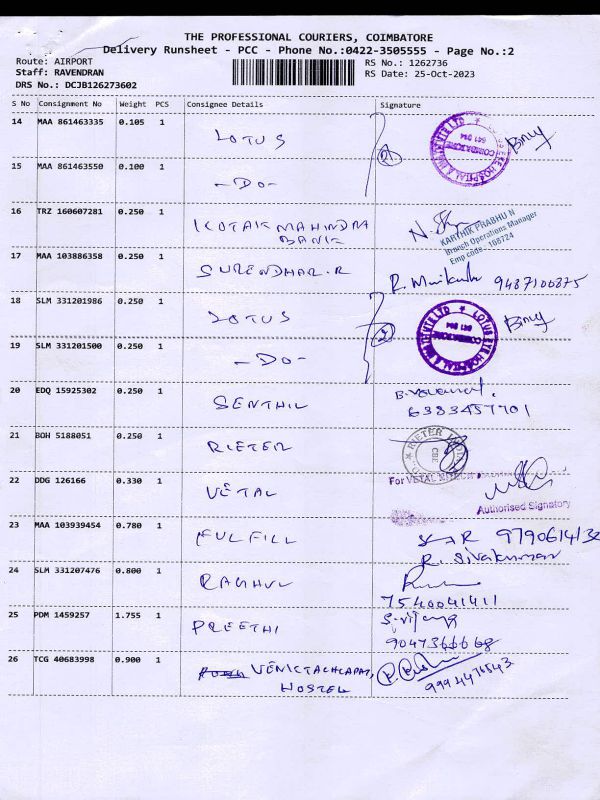 THE PROFESSIONAL COURIERS, COIMBATORE
Delivery Runsheet - PCC - Phone No.:0422-3505555 - Page No.:2
Route: AIRPORT
Staff: RAVENDRAN
DRS No.: DCJB126273602
RS No.: 1262736
RS Date: 25-Oct-2023
S No Consignment No Weight PCS Consignee Details Signature
14 MAA 861463335 0.105 1 LOTUS
15 MAA 861463550 0.100 1 -DO-
16 TRZ 160607281 0.250 1 KOTAK MAHINDRA BANK
KARTHIK PRABHU N
Branch Operations Manager
Emp code - 108724
17 MAA 103886358 0.250 1 SURENDHAR.R R. 9487100875
18 SLM 331201986 0.250 1 LOTUS
LOTUS EYE HOSPITAL
19 SLM 331201500 0.250 1 -DO-
20 EDQ 15925302 0.250 1 SENTHIL
6383457701
21 BOH 5188051 0.250 1 RIETER
RIETER
CBE
22 DDG 126166 0.330 1 VETAL
For VETAL
Authorised Signatory
23 MAA 103939454 0.780 1 FULFILL 9790614132
R. Sivakumar
24 SLM 331207476 0.800 1 RAGHUL
7540041411
25 PDM 1459257 1.755 1 PREETHI
9047366668
26 TCG 40683998 0.900 1 VENKTACHLAPAT,
HOSTEL
9994476543